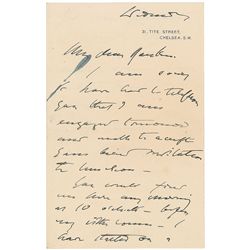 31, TITE STREET,
CHELSEA. S.W.
My dear
I am sorry
to have had to telephone
you that I am
engaged tomorrow
and unable to accept
your kind invitation
to luncheon—
You could find
me here any morning
at 10 o'clock— before
my sitter comes— I
have